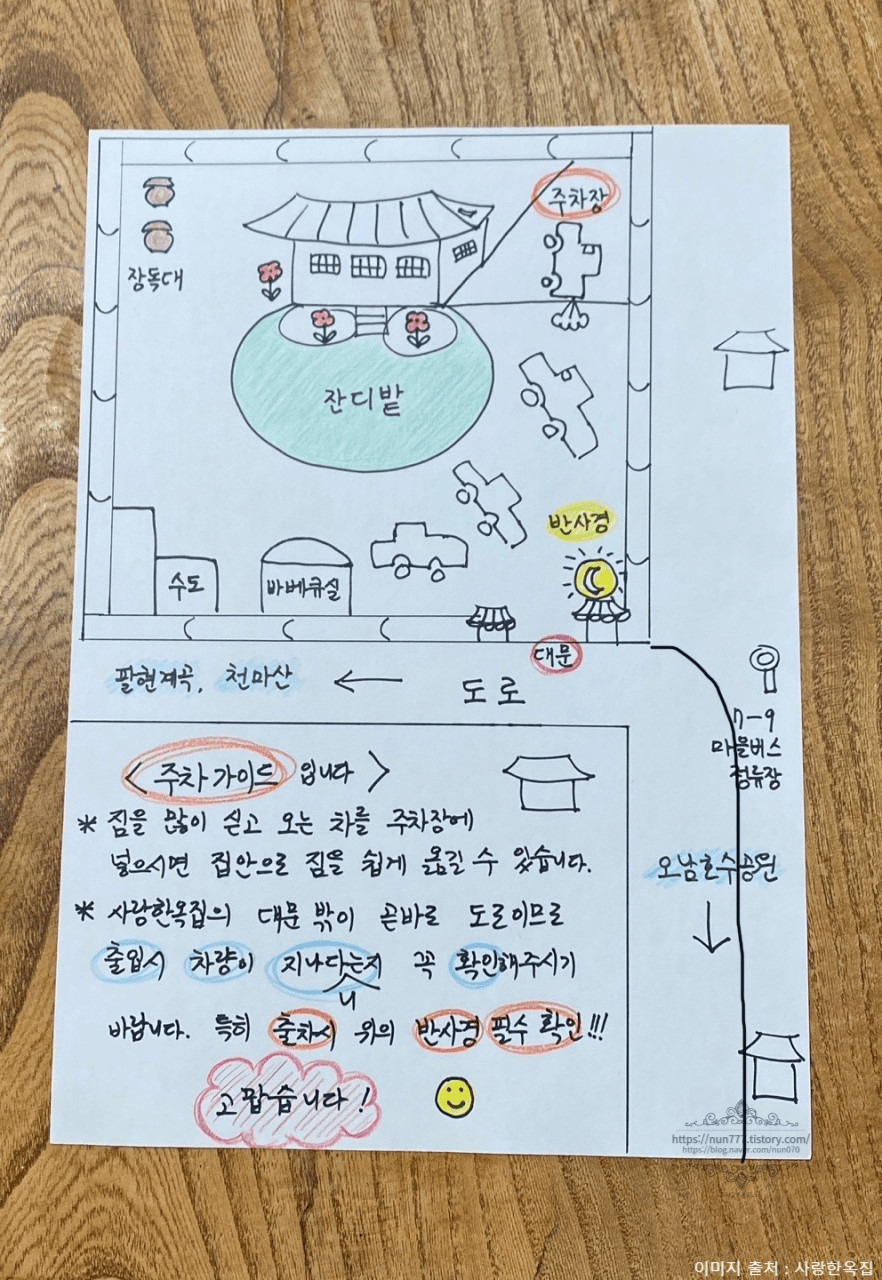 주차장
장독대
잔디밭
반사경
수도
바베큐실
대문
팔현계곡, 천마산 ←
도로
7-9
마을버스
정류장
<주차가이드 입니다>
* 짐을 많이 싣고 오는 차를 주차장에
넣으시면 집안으로 짐을 쉽게 옮길 수 있습니다.
오남호수공원
* 사랑한옥집의 대문 밖이 곧바로 도로이므로
출입시 차량이 지나다니는지 꼭 확인해주시기
바랍니다. 특히 출차시 위의 반사경 필수 확인!!!
고맙습니다!
https://nun777.tistory.com/
https://blog.naver.com/nun070
이미지 출처 : 사랑한옥집